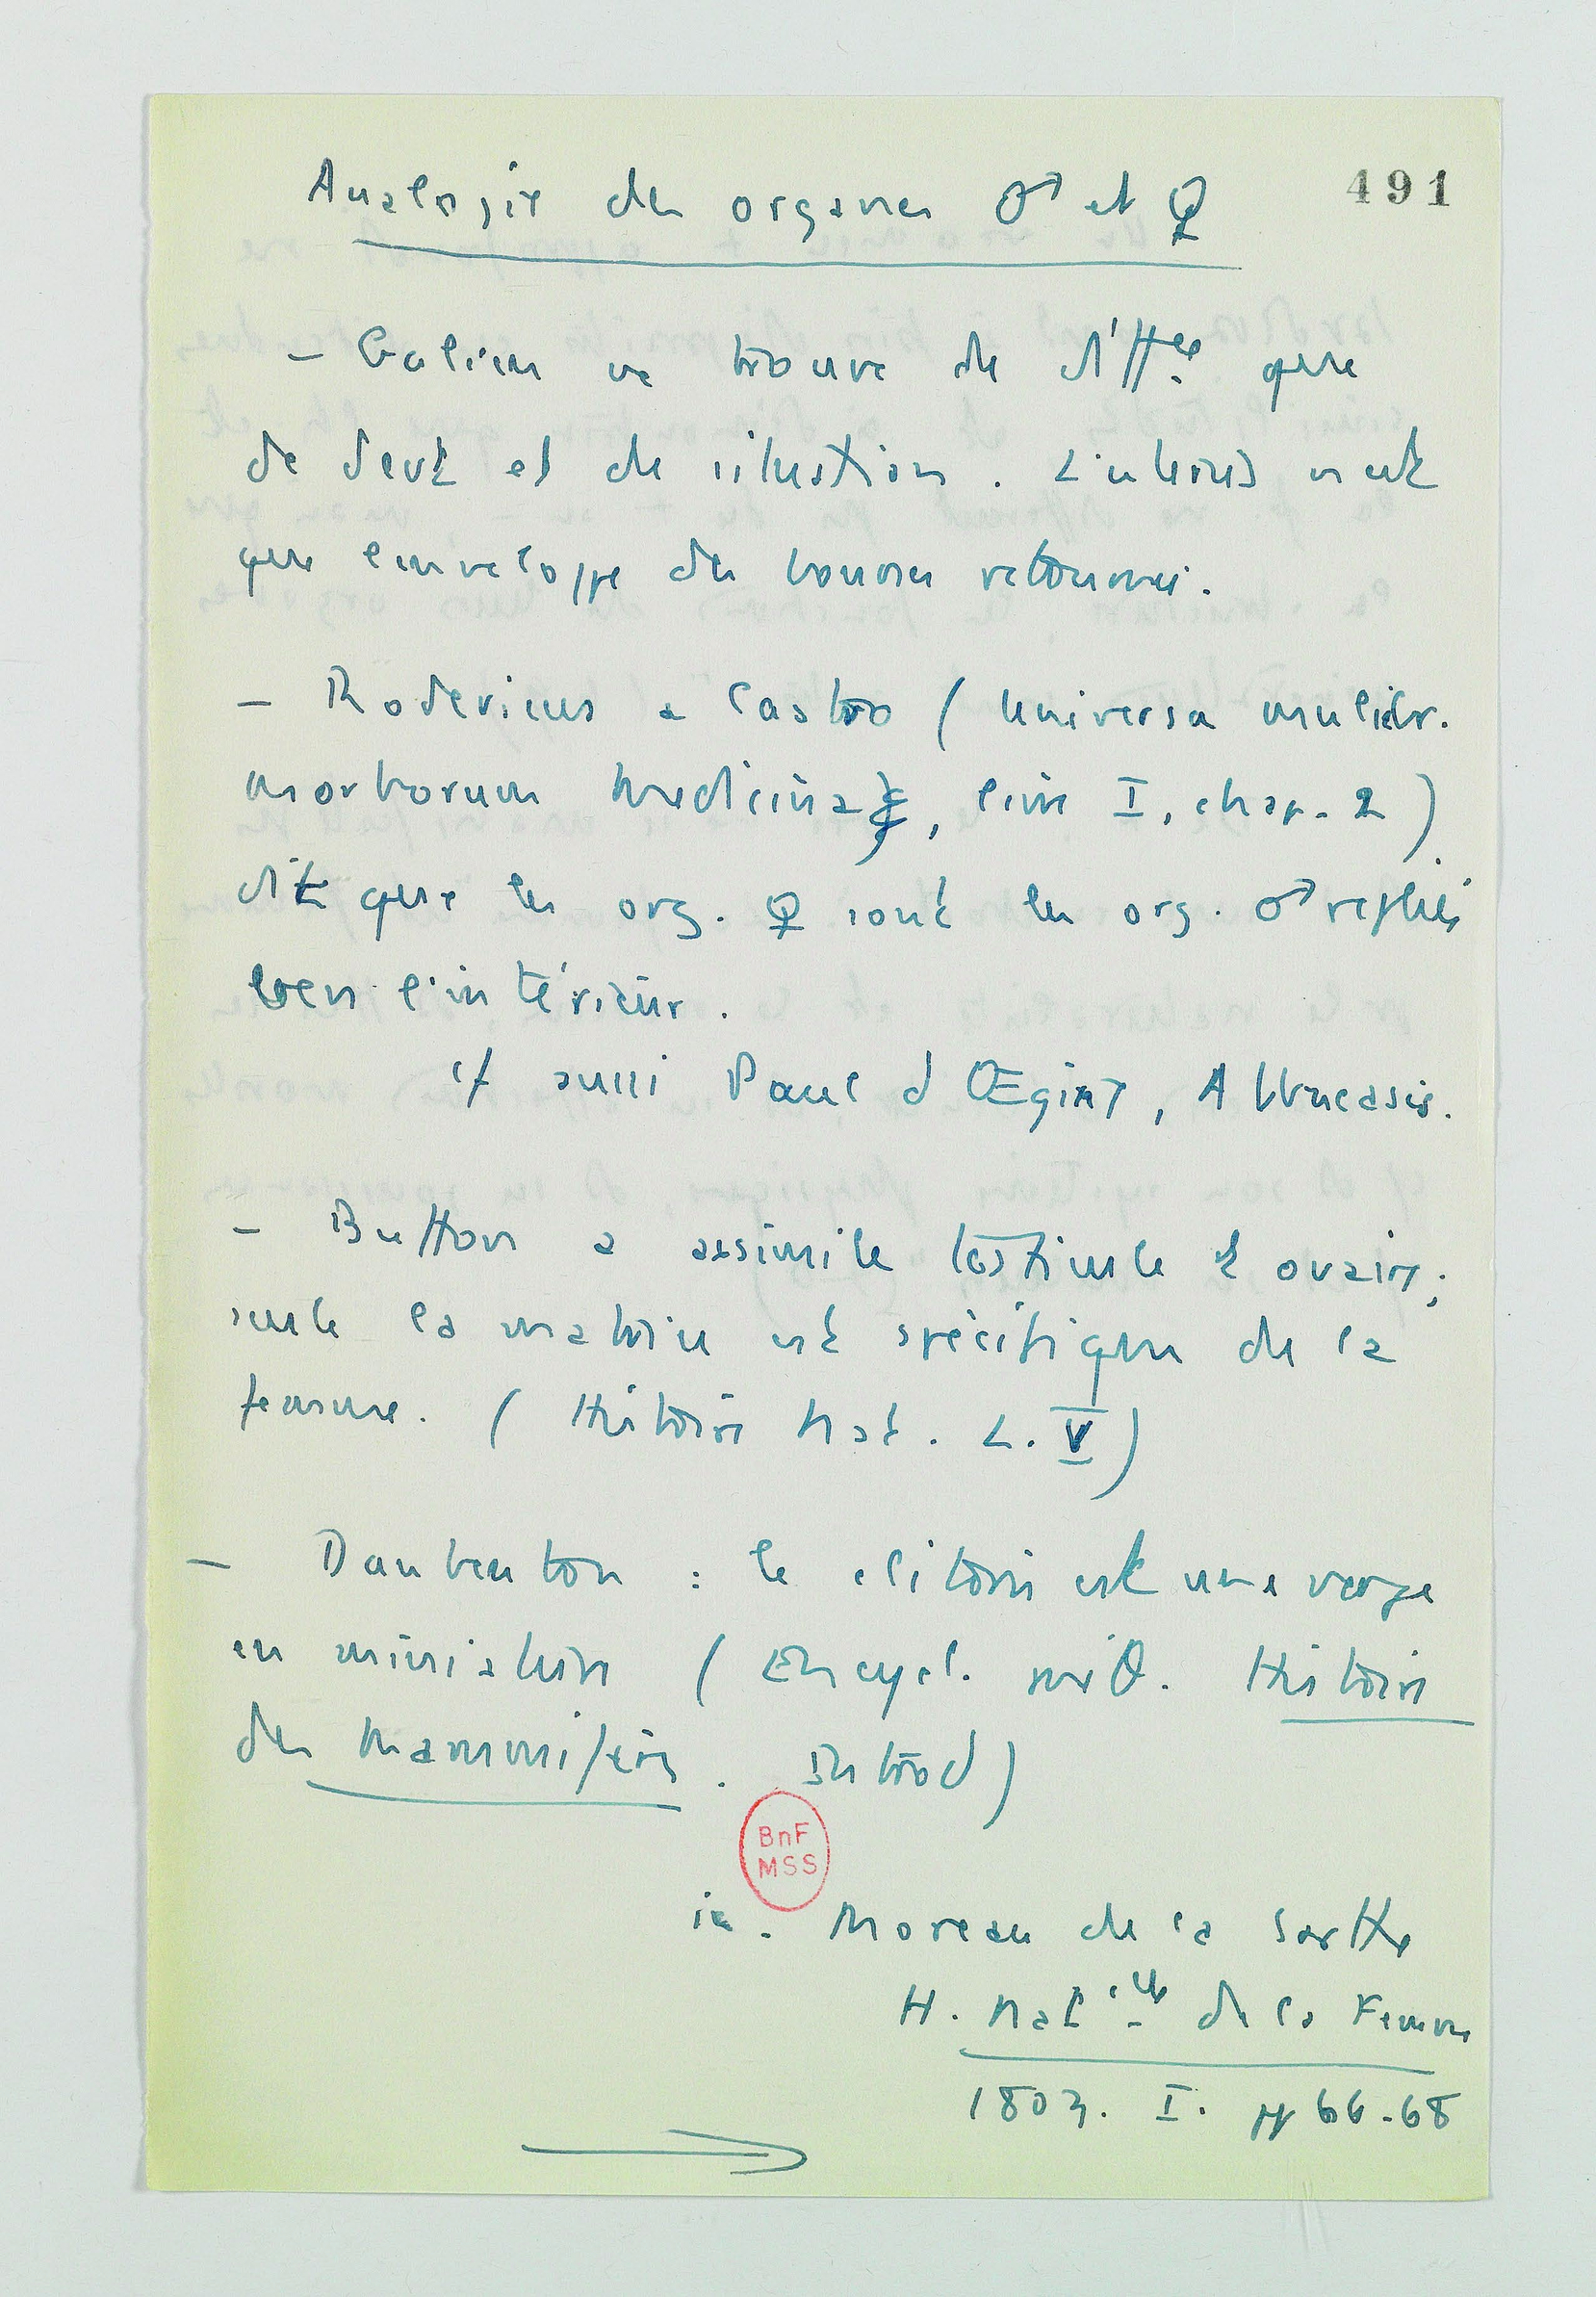 491
Analogie des organes ♂ et ♀
- Galien ne trouve de diffce que
de devt et de situation. L'uterus n'est
que l'enveloppe des bourses retournée.
- Rodericus a Castro (Universa muliebr.
morborum medicina, livre I, chap. 2)
dit que les org. ♀ sont les org. ♂ repliés
vers l'intérieur.
cf aussi Paul d'Œgine, Albucasis.
- Buffon a assimilé testicule et ovaire;
seule la matrice est spécifique de la
femme. (Histoire Nat. L. V)
- Daubenton : le clitoris est une verge
en miniature (Encycl. méθ. Histoire
des Mammifères. Introd)
BnF
MSS
in. Moreau de la Sarthe
H. Natelle de la Femme
1803. I. pp 66-68